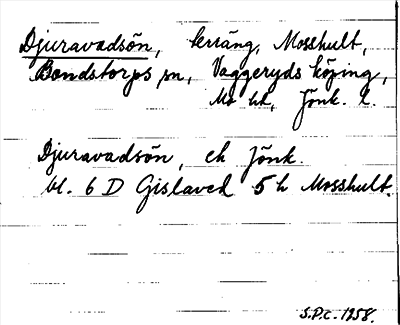 Djuravadsön, terräng, Mosshult,
Bondstorps sn, Vaggeryds köping,
Mo hd, Jönk. l.
Djuravadsön, ek Jönk.
bl. 6 D Gislaved 5 h Mosshult.
S.P.c. 1958.